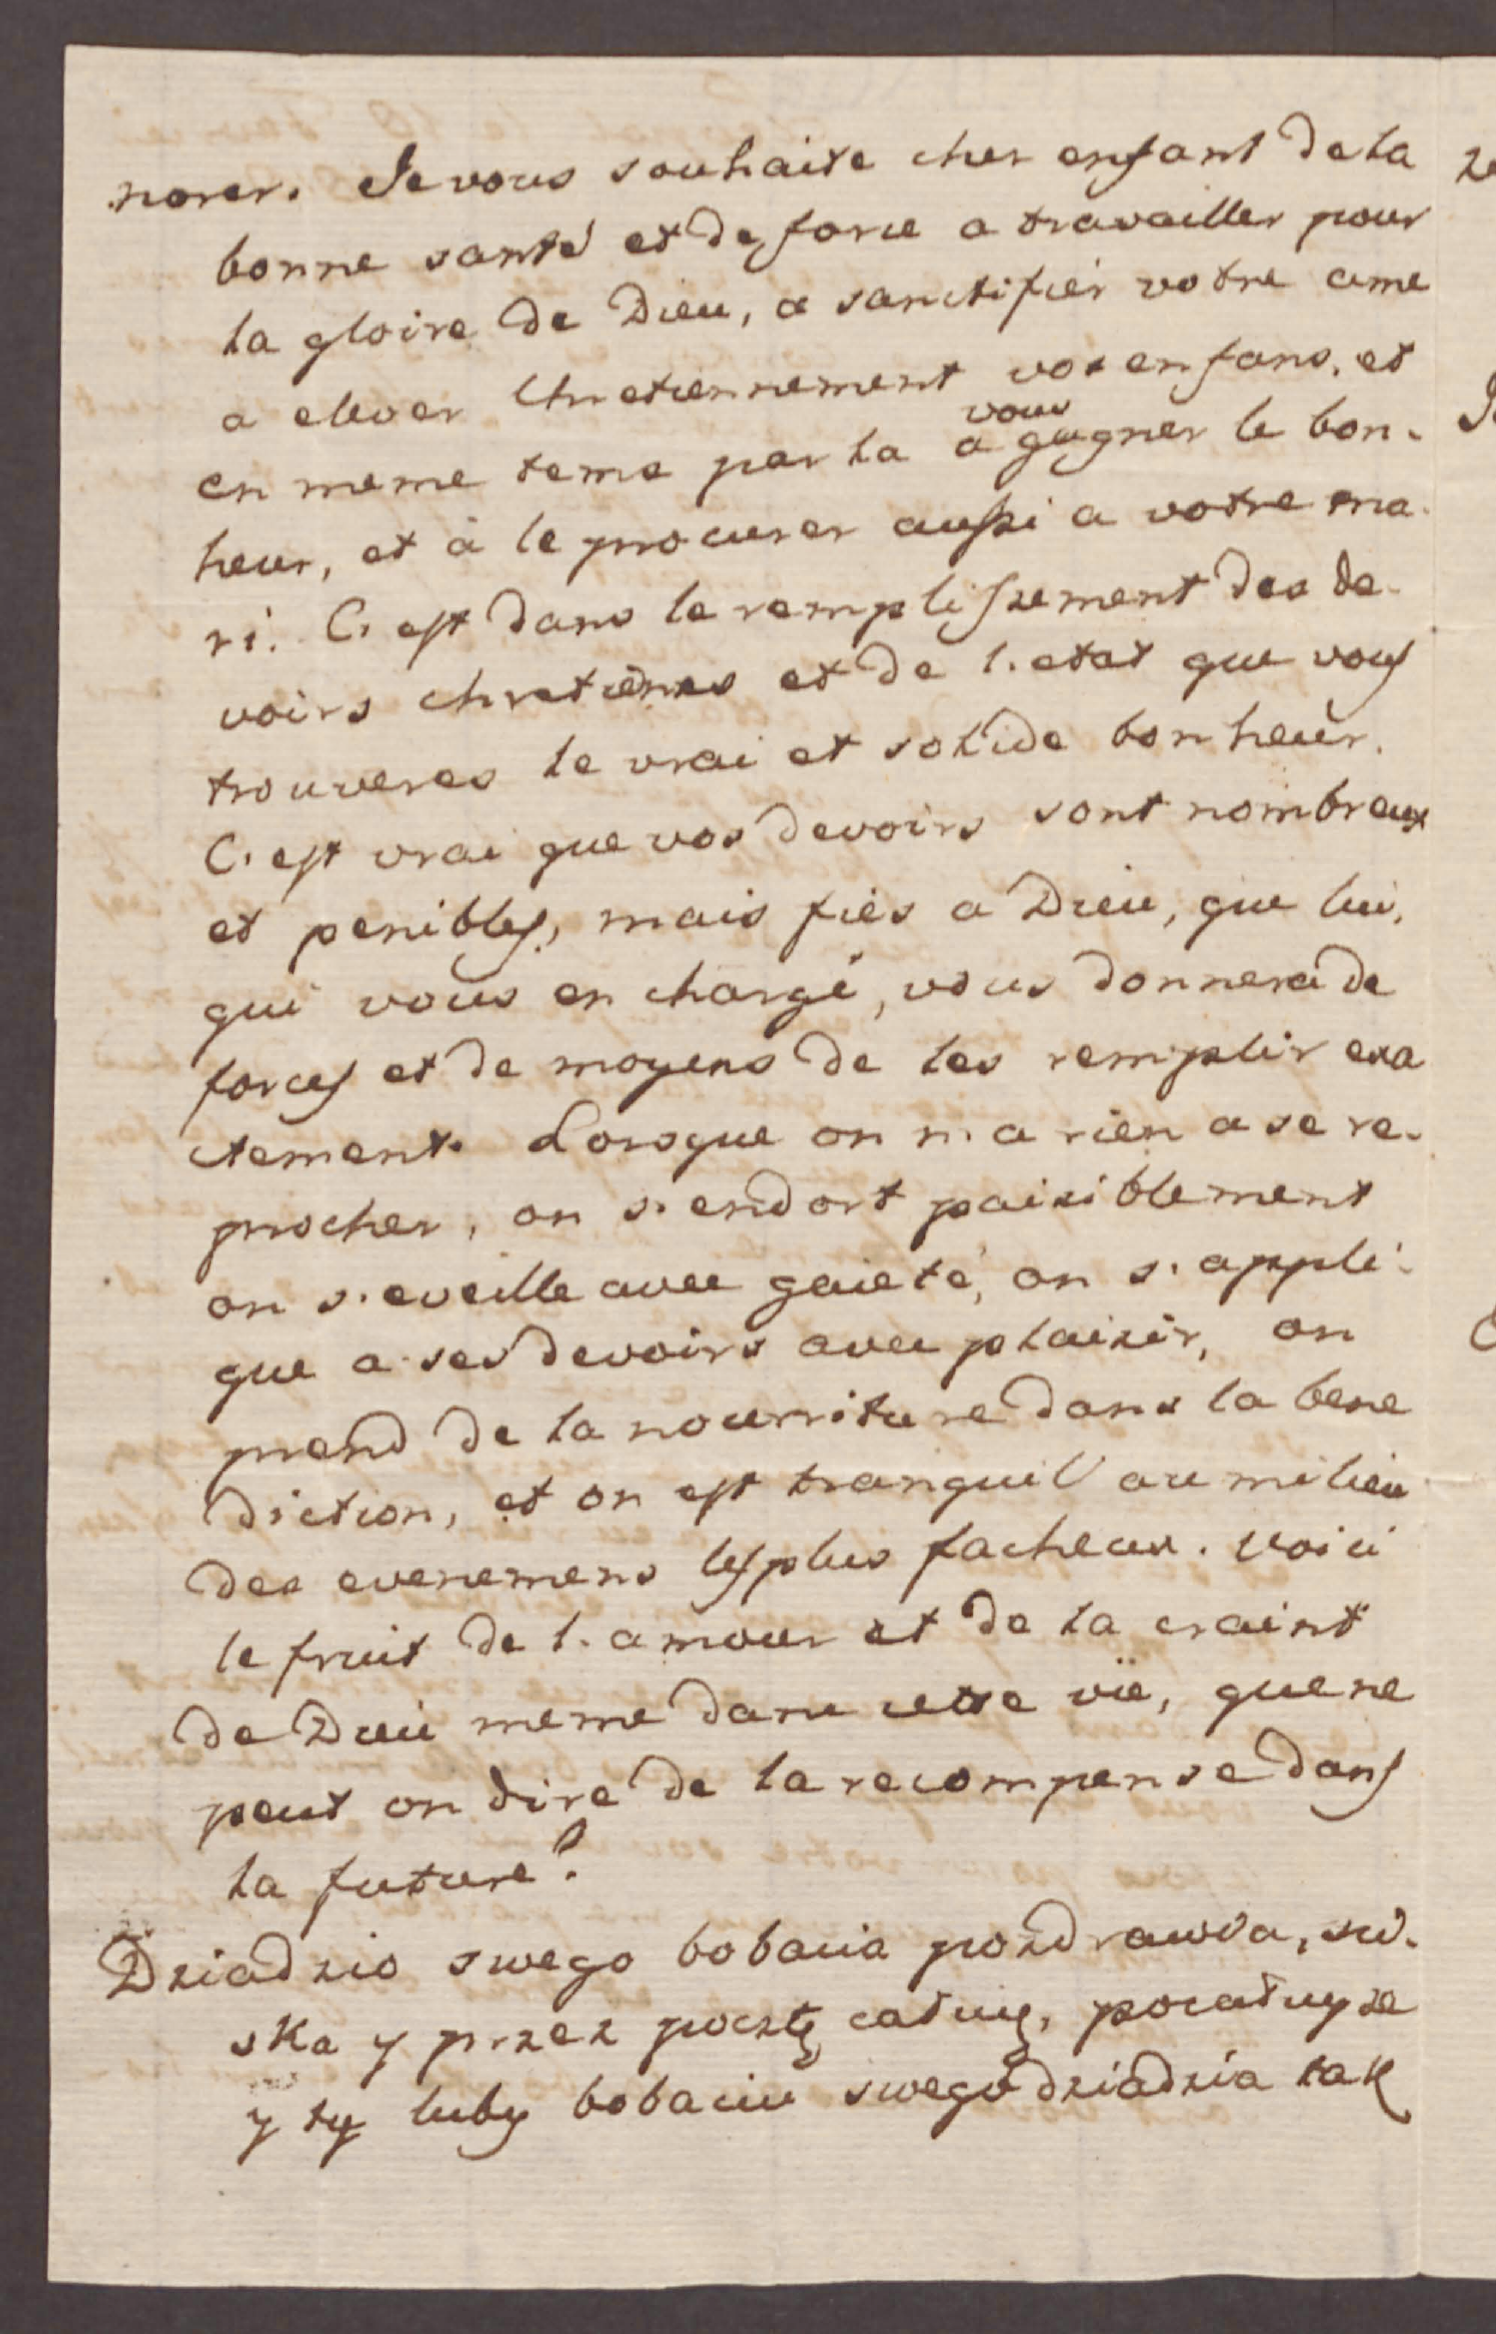 norer. Je vous souhaite cher enfant de la
bonne santé et de force a travailler pour
la gloire de Dieu, a sanctifier votre ame
a elever Chretiennement vos enfans, et
en meme tems par la a vous gagner le bon-
heur, et à le procurer aussi a votre ma-
ri. C'est dans le remplissement des de-
voirs chretiênes et de l'etat que vous
trouveres le vrai et solide bonheur.
C'est vrai que vos devoirs sont nombreux
et penibles, mais fiés a Dieu, que lui,
qui vous en chargé, vous donnera de
forces et de moyens de les remplir exa
ctement. Lorsque on n'a rien a se re-
procher, on s'endort paisiblement
on s'eveille avec gaieté, on s'appli-
que a ses devoirs avec plaisir, on
prend de la nourriture dans la bene
diction, et on est tranquil au milieu
des evenemens les plus facheux. Voici
le fruit de l'amour et de la craint
de Dieu meme dans cette vïe, que ne
peut on dire de la recompense dans
la future?
Dziadzio swego bobacia pozdrawia, sci-
ska y przez pocztę całuię, pocałuyże
y ty luby bobaciu swego dziadzia tak